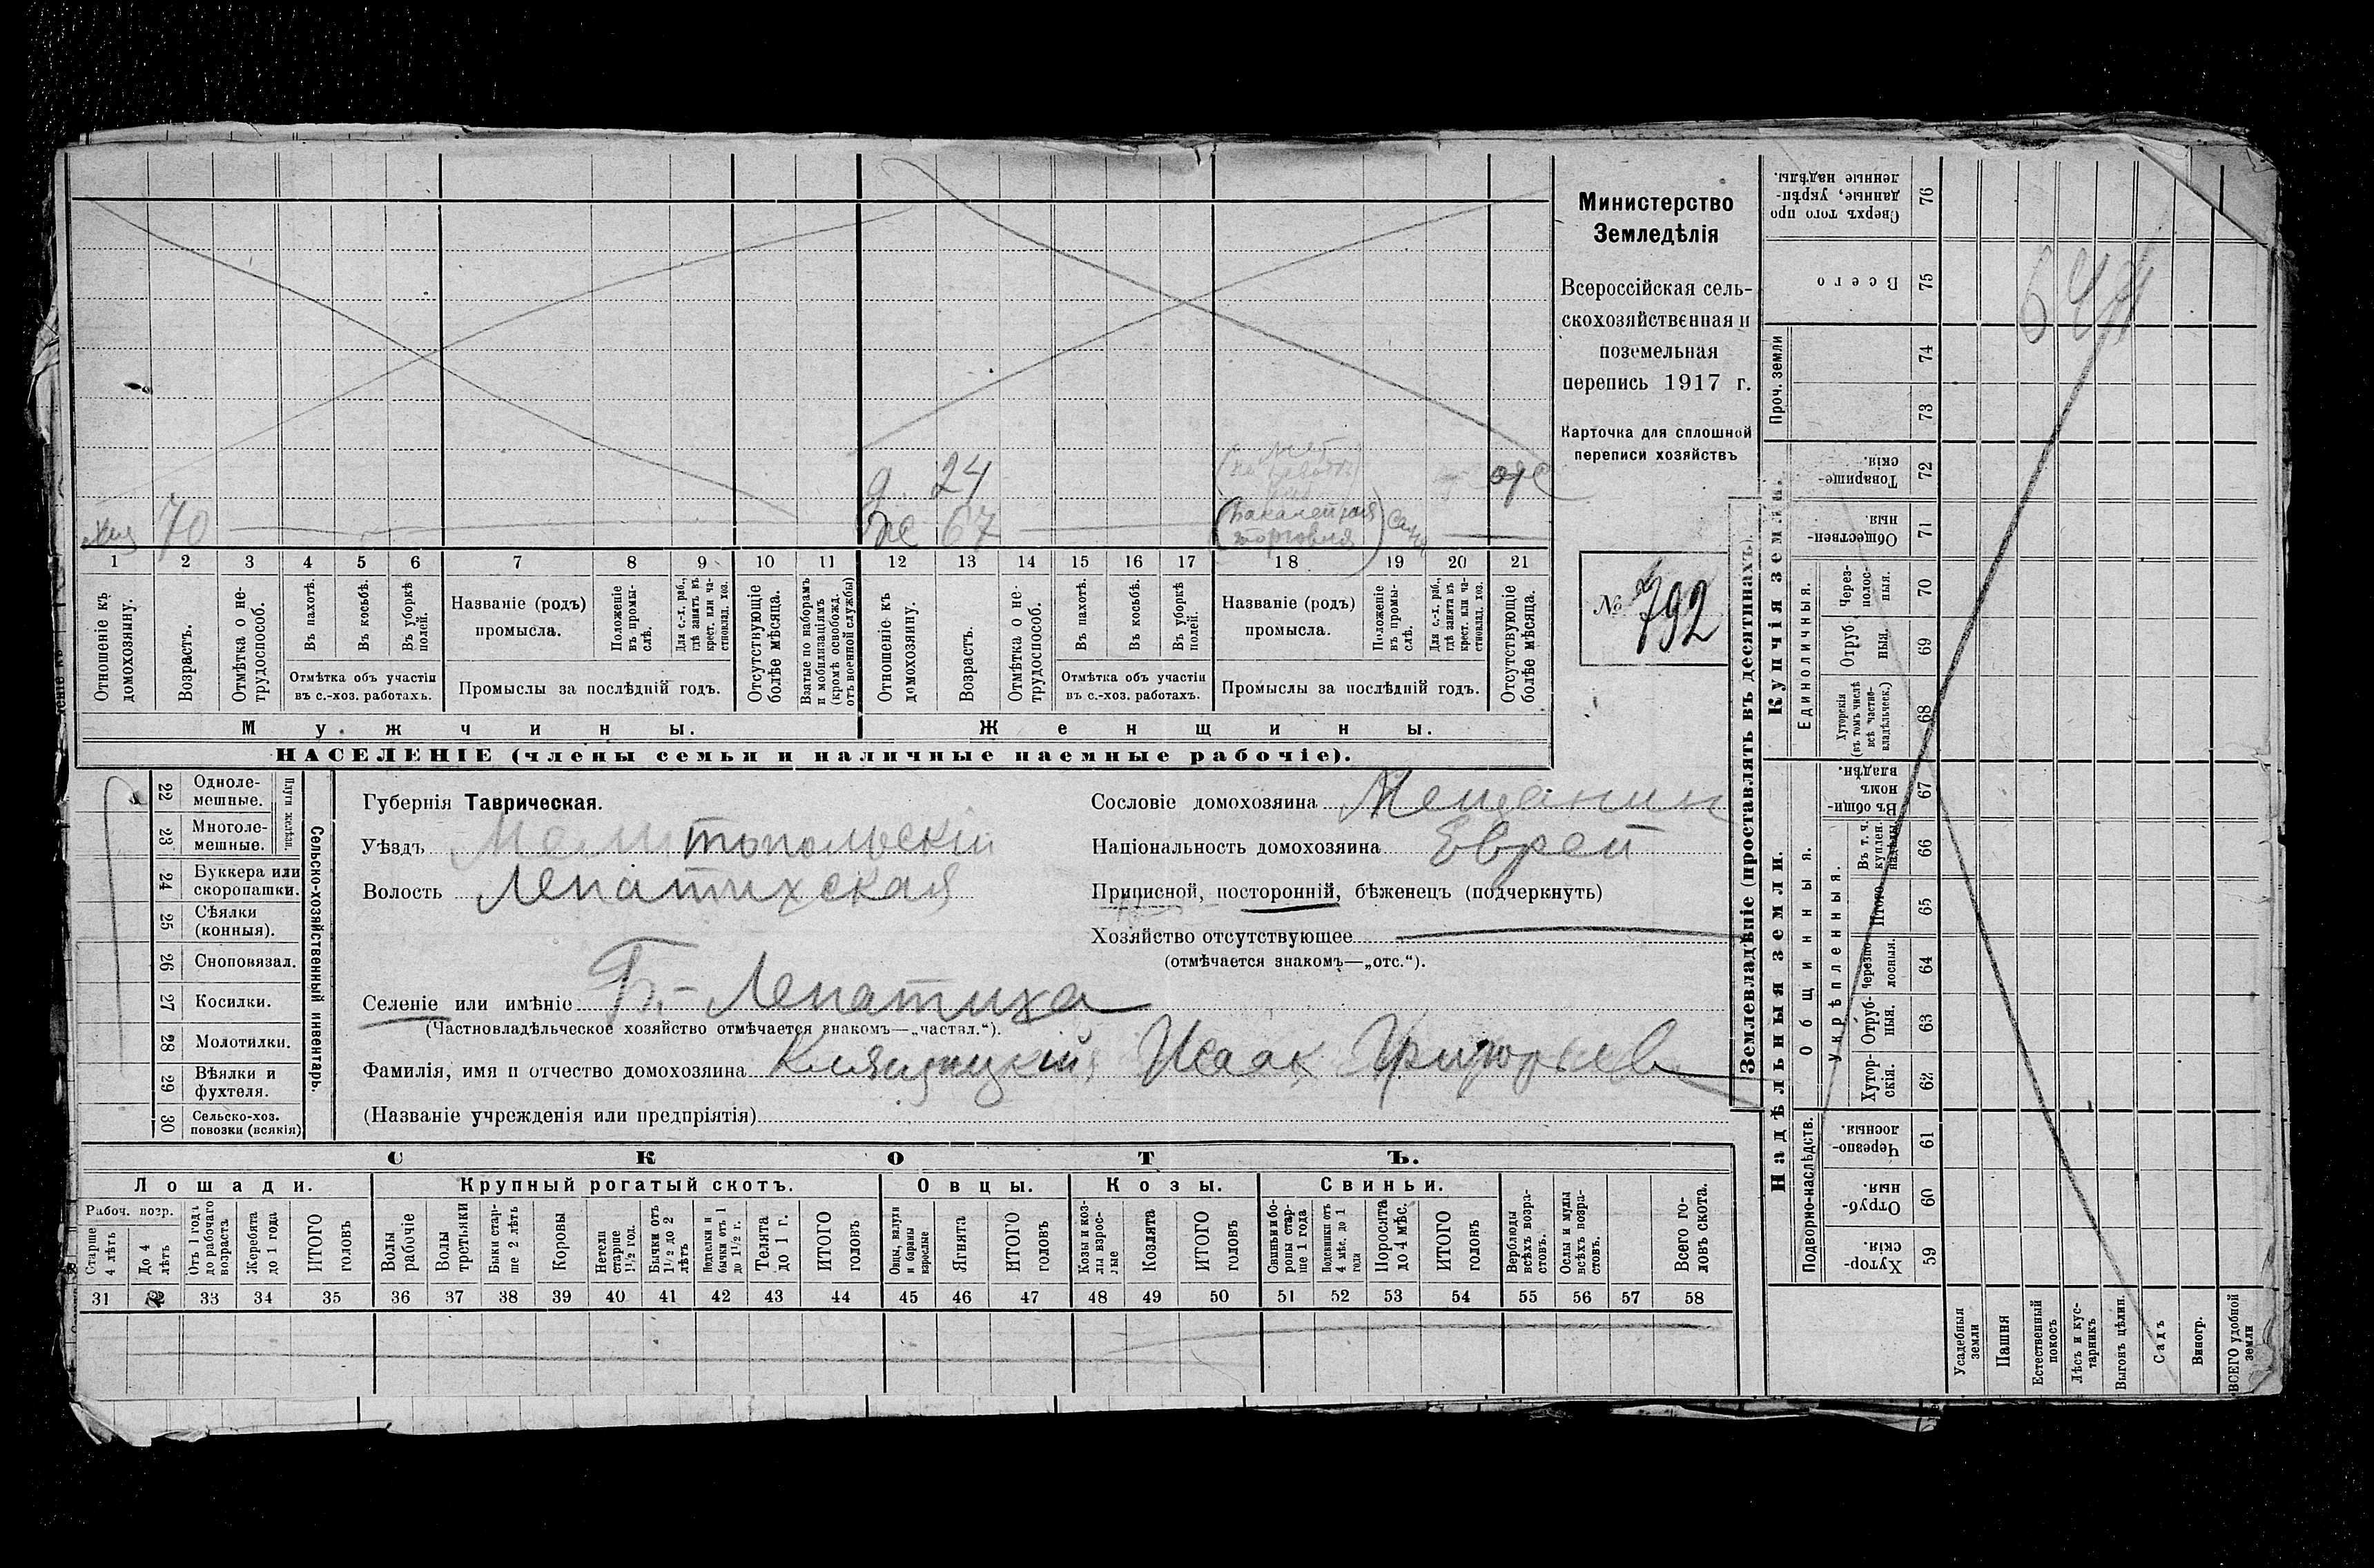 Министерство
Земледѣлія
Всероссійская сель-
скохозяйственная и
поземельная
перепись 1917 г.
Карточка для сплошной
переписи хозяйствъ
№ 792
д. 24 отс
хоз 70
же 67 (Бакалейная торговля)
1 2 3 4 5 6 7 8 9 10 11 12 13 14 15 16 17 18 19 20 21
Отношеніе къ домохозяину.
Возрастъ.
Отмѣтка о не-трудоспособ.
Въ пахотѣ.
Въ косьбѣ.
Въ уборкѣ полей.
Отмѣтка объ участіи въ с.-хоз. работахъ.
Названіе (родъ) промысла.
Положеніе въ промы-слѣ.
Для с.-х. раб., гдѣ занятъ въ крест. или ча-стновлад. хоз.
Промыслы за послѣдній годъ.
Отсутствующіе болѣе мѣсяца.
Взятые по наборамъ и мобилизаціямъ (кромѣ освобожд. отъ военной службы)
Отношеніе къ домохозяину.
Возрастъ.
Отмѣтка о не-трудоспособ.
Въ пахотѣ.
Въ косьбѣ.
Въ уборкѣ полей.
Отмѣтка объ участіи въ с.-хоз. работахъ.
Названіе (родъ) промысла.
Положеніе въ промы-слѣ.
Для с.-х. раб., гдѣ занята въ крест. или ча-стновлад. хоз.
Промыслы за послѣдній годъ.
Отсутствующіе болѣе мѣсяца.
Мужчины. Женщины.
НАСЕЛЕНІЕ (члены семьи и наличные наемные рабочіе).
Сельско-хозяйственный инвентарь.
Плуги желѣзн.
22 Одноле-мешные.
23 Многоле-мешные.
24 Буккера или скоропашки.
25 Сѣялки (конныя).
26 Сноповязал.
27 Косилки.
28 Молотилки.
29 Вѣялки и фухтеля.
30 Сельско-хоз. повозки (всякія)
Губернія Таврическая.
Уѣздъ Мелитопольскій
Волость Лепатихская
Селеніе или имѣніе Б.-Лепатиха
(Частновладѣльческое хозяйство отмѣчается знакомъ—„частвл.“).
Фамилія, имя и отчество домохозяина Исаак Григорьев
(Названіе учрежденія или предпріятія)
Сословіе домохозяина Мещанин
Національность домохозяина Еврей
Приписной, посторонній, бѣженецъ (подчеркнуть)
Хозяйство отсутствующее
(отмѣчается знакомъ—„отс.“).
СКОТЪ.
Лошади. Крупный рогатый скотъ. Овцы. Козы. Свиньи.
Рабоч. возр.
Старше 4 лѣтъ
До 4 лѣтъ
Отъ 1 года до рабочаго возраста
Жеребята до 1 года
ИТОГО головъ
Волы рабочіе
Волы третьяки
Быки стар-ше 2 лѣтъ
Коровы
Нетели старше 1½ год.
Бычки отъ 1½ до 2 лѣтъ
Подтелки и бычки отъ 1 до 1½ г.
Телята до 1 г.
ИТОГО головъ
Овцы, валухи и бараны взрослые
Ягнята
ИТОГО головъ
Козы и коз-лы взрос-лые
Козлята
ИТОГО головъ
Свиньи и бо-ровы стар-ше 1 года
Подсвинки отъ 4 мѣс. до 1 года
Поросята до 4 мѣс.
ИТОГО головъ
Верблюды всѣхъ возра-стовъ.
Ослы и мулы всѣхъ возра-стовъ.
Всего го-ловъ скота.
31 33 34 35 36 37 38 39 40 41 42 43 44 45 46 47 48 49 50 51 52 53 54 55 56 57 58
Землевладѣніе (проставлять въ десятинахъ).
Надѣльныя земли. Купчія земли. Проч. земли
Подворно-наслѣдств.
Общинныя.
Укрѣпленныя.
Единоличныя.
Хутор-скія. 59
Отруб-ныя. 60
Черезпо-лосныя. 61
Хутор-скія. 62
Отруб-ныя. 63
Черезпо-лосныя. 64
Итого 65
Въ т. ч. куплен. надѣлы 66
Въ общин-номъ владѣн. 67
Хуторскія (въ томъ числѣ всѣ частно-владѣльческ.) 68
Отруб-ныя. 69
Через-полос-ныя. 70
Обществен-ныя. 71
Товарище-скія. 72
73
74
Всего 75
Сверхъ того про-данные, укрѣп-ленные надѣлы. 76
Усадебныя земли
Пашня
Естественный покосъ
Лѣсъ и кус-тарникъ
Выгонъ цѣлин.
Садъ
Виногр.
ВСЕГО удобной земли